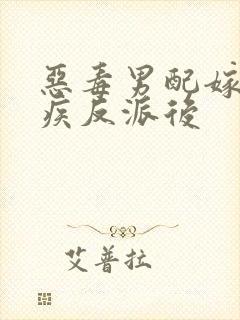 惡毒男配嫁
疾反派後
艾普拉